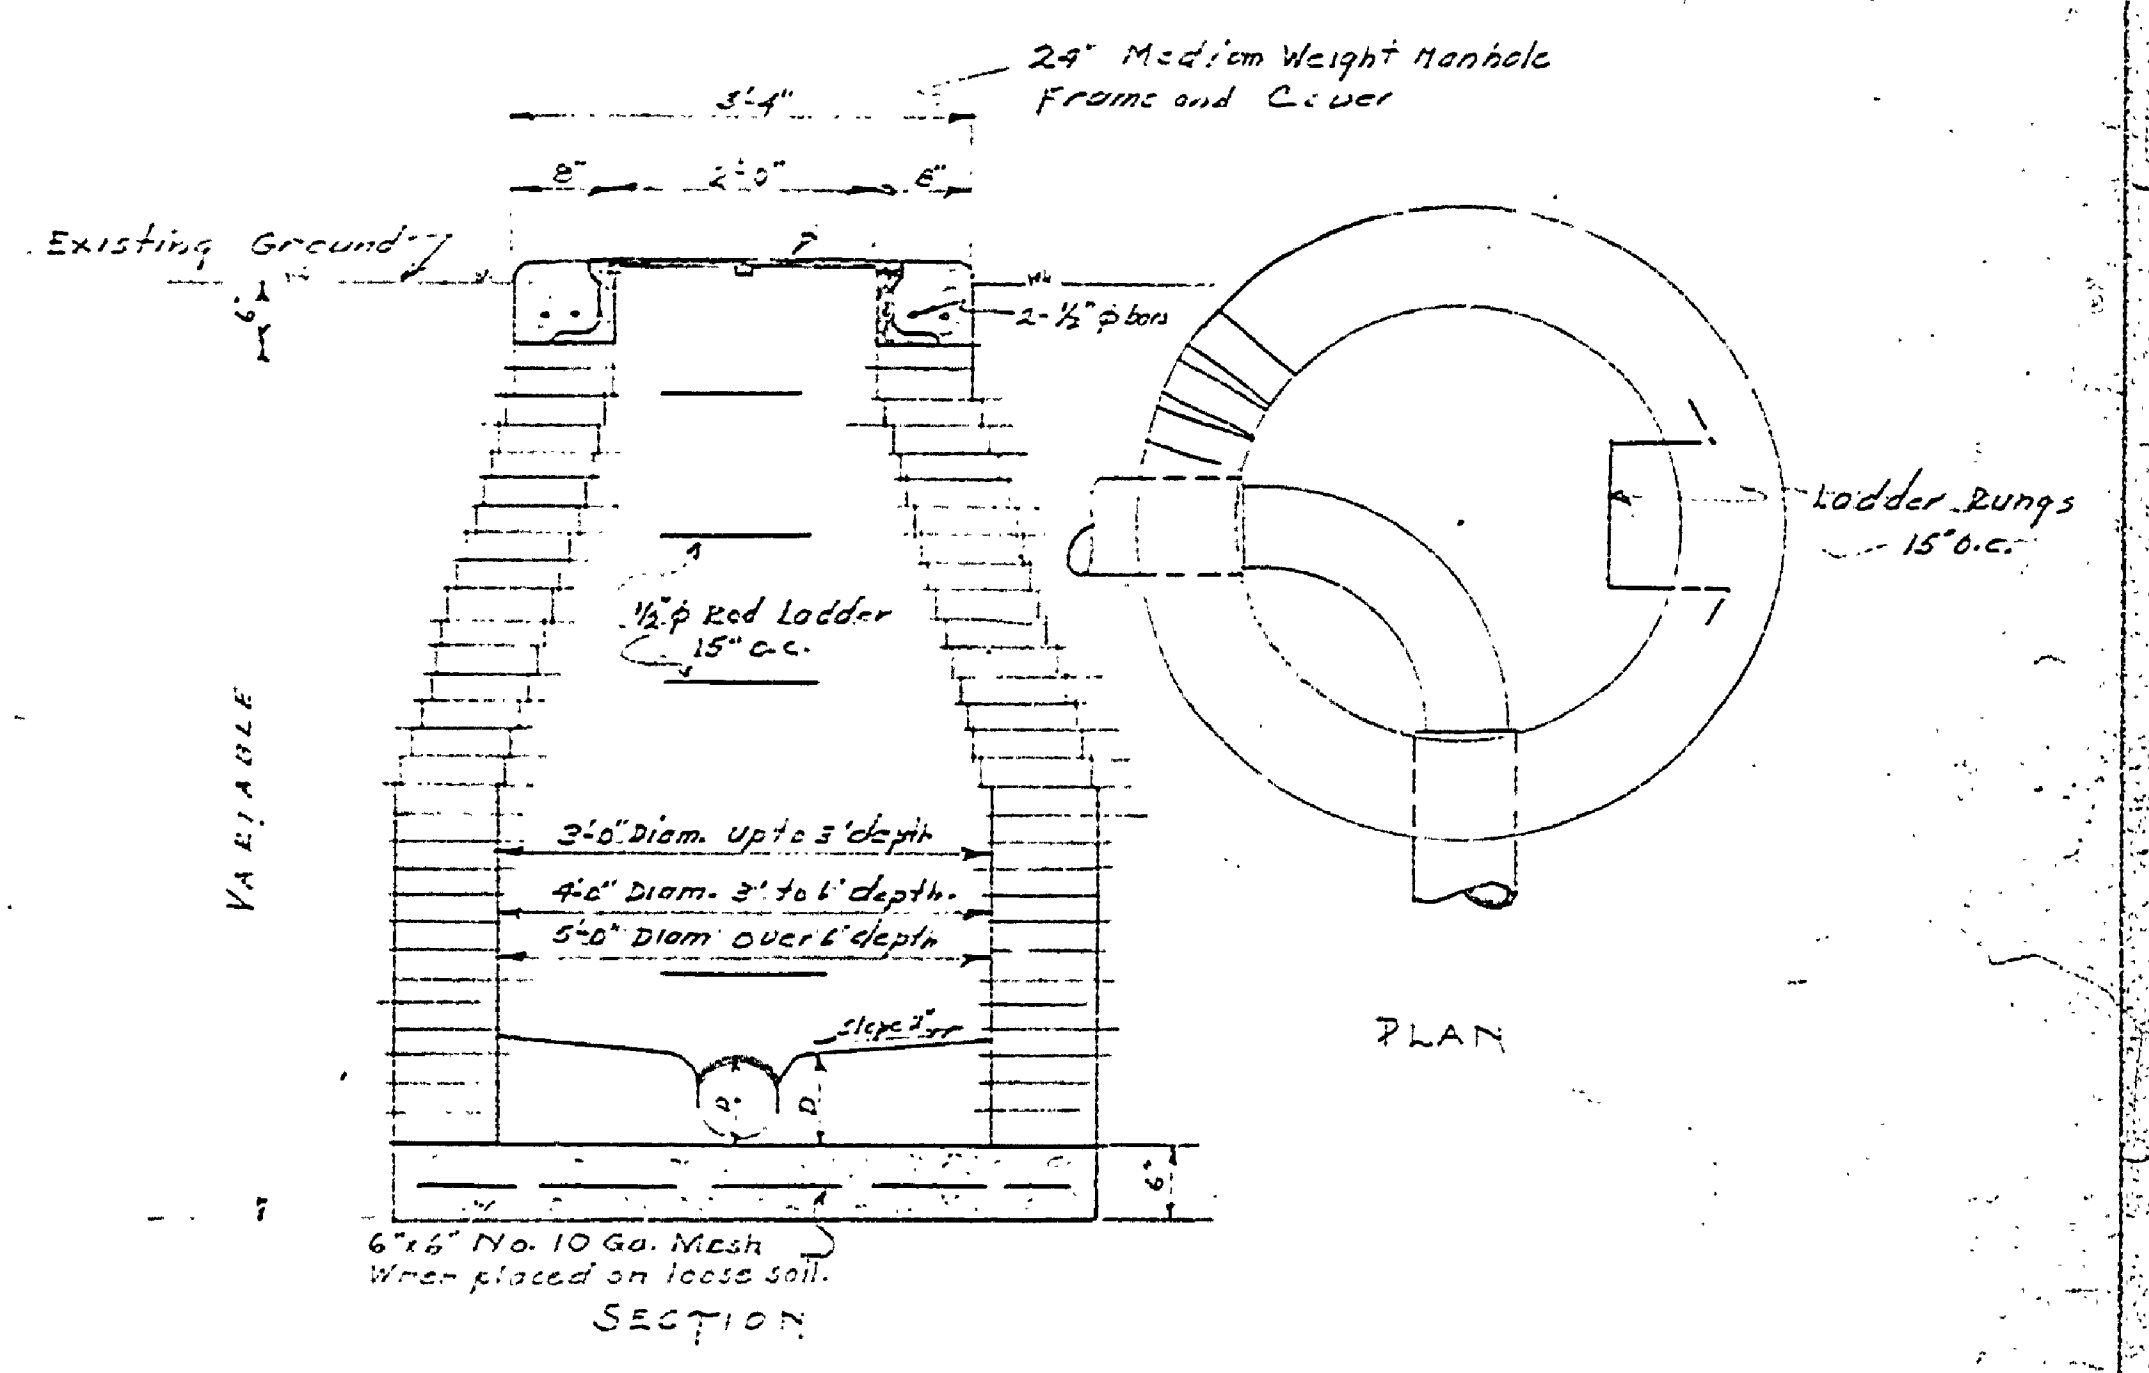 24" Medium Weight Manhole
Frame and Cover
3'-4"
8" 2'-0" 8"
Existing Ground
6"
2-½" φ bars
½" φ Rod Ladder
15" o.c.
Ladder Rungs
15" o.c.
VARIABLE
3'-0" Diam. up to 3' depth
4'-0" Diam. 3' to 6' depth.
5'-0" Diam over 6' depth
Slope
D
D
6"
6"x6" No. 10 Ga. Mesh
When placed on loose soil.
SECTION
PLAN